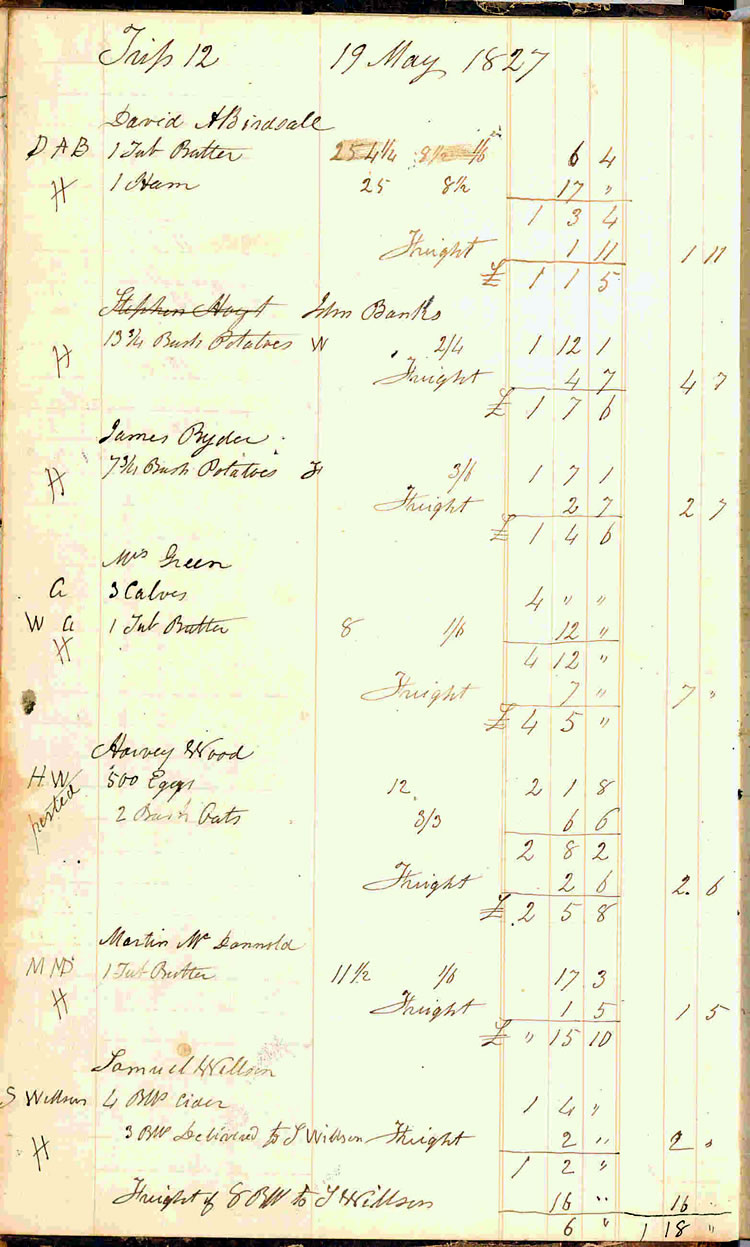 Trip 12 19 May 1827
David A Birdsall
D A B 1 Tub Butter 25 4 1/4 8 1/2 1/6 6 4
H 1 Ham 25 8 1/2 17 "
1 3 4
Freight 1 11 1 11
£ 1 1 5
Stephen Hoyt Jem Banks
13 3/4 Bush Potatoes W 2/4 1 12 1
H Freight 4 7 4 7
£ 1 7 6
James Ryder
H 7 3/4 Bush Potatoes 3/6 1 7 1
Freight 2 7 2 7
£ 1 4 6
Mrs Green
G 3 Calves 4 " "
W G 1 Tub Butter 8 1/6 12 "
H 4 12 "
Freight 7 " 7 "
£ 4 5 "
Harvey Wood
H W 500 Eggs 12 2 1 8
posted 2 Bush Oats 3/3 6 6
2 8 2
Freight 2 6 2 6
£ 2 5 8
Martin Mc Dannold
M MD 1 Tub Butter 11 1/2 1/6 17 3
H Freight 1 5 1 5
£ " 15 10
Samuel Willson
S Willson 4 Bbls Cider 1 4 "
H 3 Bbls Delivered to S Willson Freight 2 " 2 "
1 2 "
Freight of 8 Bbl to S Willson 16 " 16
6 " 1 18 "